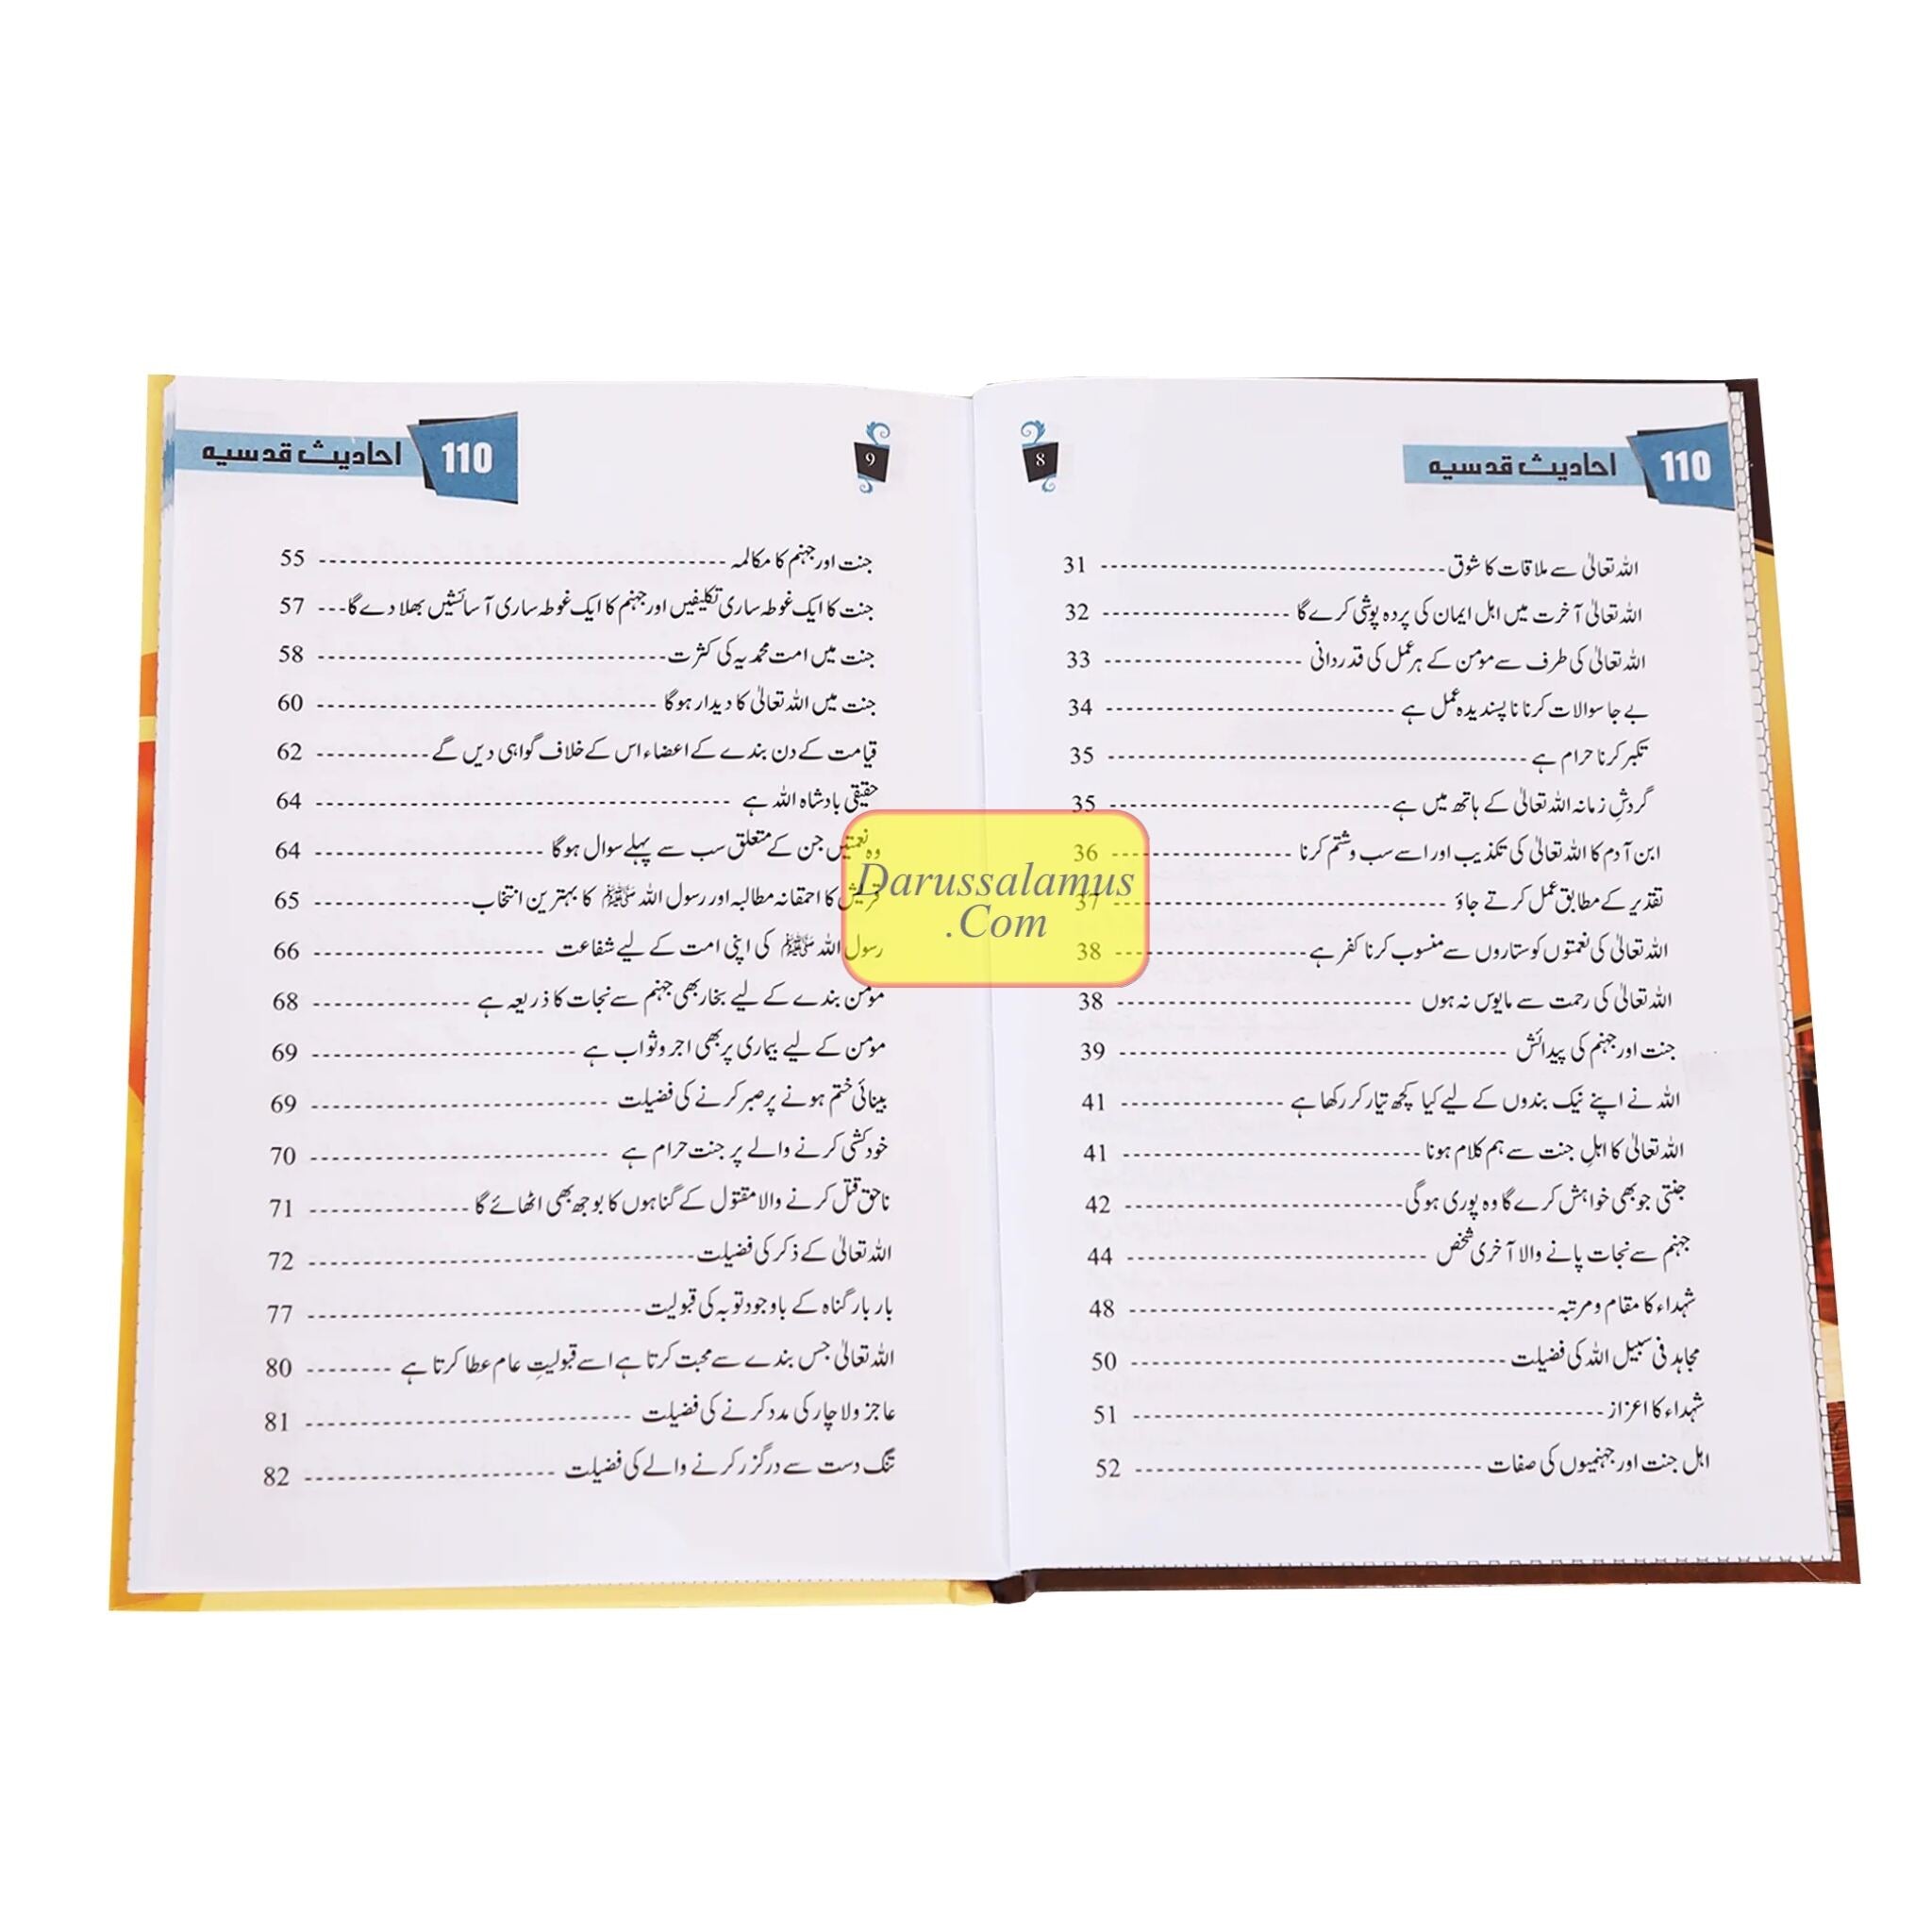 110 احادیث قدسیہ
8
اللہ تعالیٰ سے ملاقات کا شوق ---------- 31
اللہ تعالیٰ آخرت میں اہل ایمان کی پردہ پوشی کرے گا ---------- 32
اللہ تعالیٰ کی طرف سے مومن کے ہر عمل کی قدردانی ---------- 33
بے جا سوالات کرنا ناپسندیدہ عمل ہے ---------- 34
تکبر کرنا حرام ہے ---------- 35
گردشِ زمانہ اللہ تعالیٰ کے ہاتھ میں ہے ---------- 35
ابن آدم کا اللہ تعالیٰ کی تکذیب اور اسے سب وشتم کرنا ---------- 36
تقدیر کے مطابق عمل کرتے جاؤ ---------- 37
اللہ تعالیٰ کی نعمتوں کو ستاروں سے منسوب کرنا کفر ہے ---------- 38
اللہ تعالیٰ کی رحمت سے مایوس نہ ہوں ---------- 38
جنت اور جہنم کی پیدائش ---------- 39
اللہ نے اپنے نیک بندوں کے لیے کیا کچھ تیار کر رکھا ہے ---------- 41
اللہ تعالیٰ کا اہلِ جنت سے ہم کلام ہونا ---------- 41
جنتی جو بھی خواہش کرے گا وہ پوری ہوگی ---------- 42
جہنم سے نجات پانے والا آخری شخص ---------- 44
شہداء کا مقام ومرتبہ ---------- 48
مجاہد فی سبیل اللہ کی فضیلت ---------- 50
شہداء کا اعزاز ---------- 51
اہل جنت اور جہنمیوں کی صفات ---------- 52
110 احادیث قدسیہ
9
جنت اور جہنم کا مکالمہ ---------- 55
جنت کا ایک غوطہ ساری تکلیفیں اور جہنم کا ایک غوطہ ساری آسائشیں بھلا دے گا --- 57
جنت میں امت محمدیہ کی کثرت ---------- 58
جنت میں اللہ تعالیٰ کا دیدار ہوگا ---------- 60
قیامت کے دن بندے کے اعضاء اس کے خلاف گواہی دیں گے ---------- 62
حقیقی بادشاہ اللہ ہے ---------- 64
وہ نعمتیں جن کے متعلق سب سے پہلے سوال ہوگا ---------- 64
قریش کا احمقانہ مطالبہ اور رسول اللہ ﷺ کا بہترین انتخاب ---------- 65
رسول اللہ ﷺ کی اپنی امت کے لیے شفاعت ---------- 66
مومن بندے کے لیے بخار بھی جہنم سے نجات کا ذریعہ ہے ---------- 68
مومن کے لیے بیماری پر بھی اجر وثواب ہے ---------- 69
بینائی ختم ہونے پر صبر کرنے کی فضیلت ---------- 69
خودکشی کرنے والے پر جنت حرام ہے ---------- 70
ناحق قتل کرنے والا مقتول کے گناہوں کا بوجھ بھی اٹھائے گا ---------- 71
اللہ تعالیٰ کے ذکر کی فضیلت ---------- 72
بار بار گناہ کے باوجود توبہ کی قبولیت ---------- 77
اللہ تعالیٰ جس بندے سے محبت کرتا ہے اسے قبولیتِ عام عطا کرتا ہے -------- 80
عاجز ولاچار کی مدد کرنے کی فضیلت ---------- 81
تنگ دست سے درگزر کرنے والے کی فضیلت ---------- 82
Darussalamus
.Com